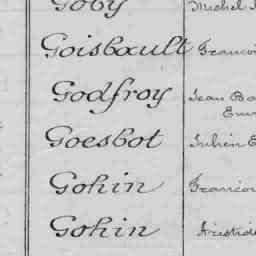 Goby Michel
Goisbault Francois
Godfroy Jean Ba
Em
Goesbot Julien E
Gohin Francois
Gohin Aristide